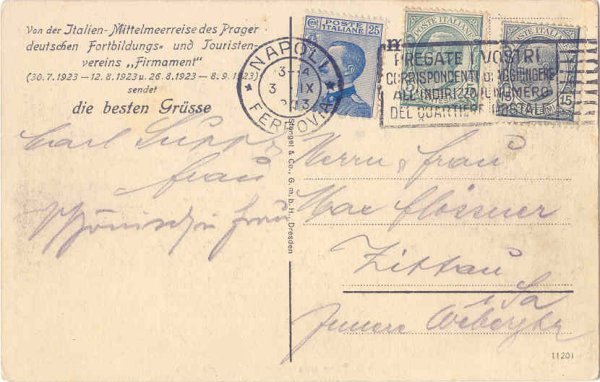 Von der Italien-Mittelmeerreise des Prager
deutschen Fortbildungs- und Touristen-
vereins „Firmament"
(30. 7. 1923 — 12. 8. 1923 u. 26. 8. 1923 — 8. 9. 1923)
sendet
die besten Grüsse
NAPOLI
FERROVIA
3 IX
POSTE ITALIANE
25
POSTE ITALIANE
POSTE ITALIANE
15
PREGATE I VOSTRI
CORRISPONDENTI DI AGGIUNGERE
ALL'INDIRIZZO IL NUMERO
DEL QUARTIERE POSTALE
Carl
Frau
Frau
Stengel & Co., G. m. b. H., Dresden
Herrn u. Frau
Max
Zittau
i. Sa
Innere Weberstr
11201